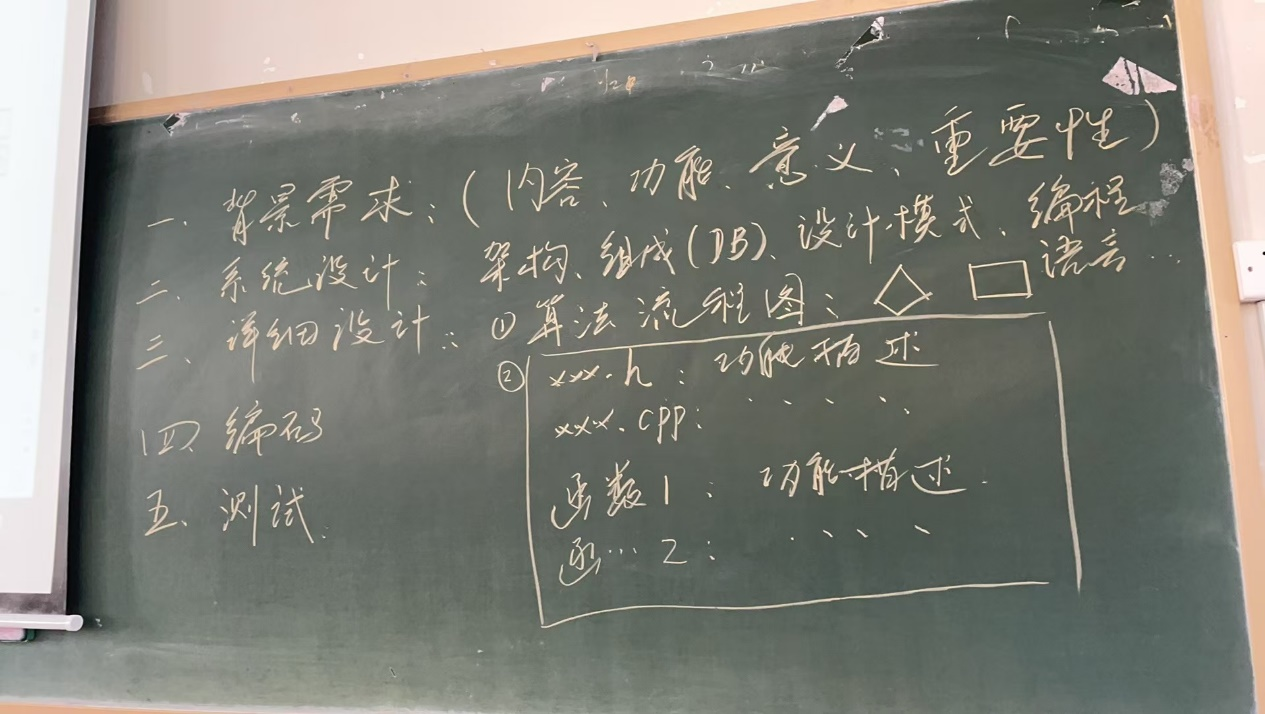 一、背景需求：（内容、功能、意义、重要性）
二、系统设计：架构、组成(DB)、设计模式、编程语言...
三、详细设计：①算法流程图：
②xxx.h：功能描述
xxx.cpp：....
函数1：功能描述.
函...2：....
四、编码
五、测试.